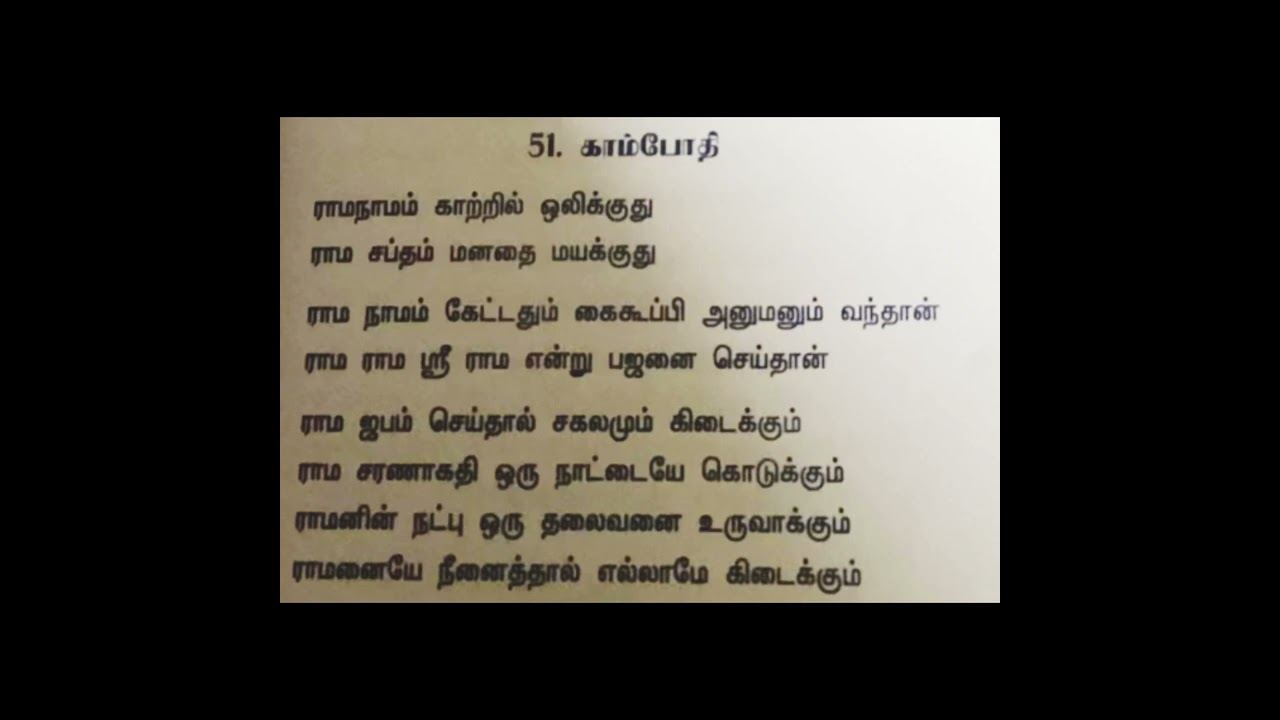 51. காம்போதி
ராமநாமம் காற்றில் ஒலிக்குது
ராம சப்தம் மனதை மயக்குது
ராம நாமம் கேட்டதும் கைகூப்பி அனுமனும் வந்தான்
ராம ராம ஸ்ரீ ராம என்று பஜனை செய்தான்
ராம ஜபம் செய்தால் சகலமும் கிடைக்கும்
ராம சரணாகதி ஒரு நாட்டையே கொடுக்கும்
ராமனின் நட்பு ஒரு தலைவனை உருவாக்கும்
ராமனையே நீனைத்தால் எல்லாமே கிடைக்கும்